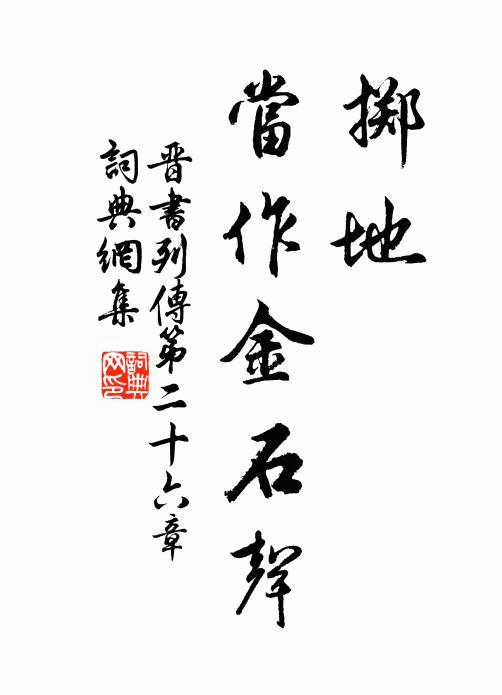 掷地
當作金石聲
晋書列傳第二十六章
詞典網集
詞典网印